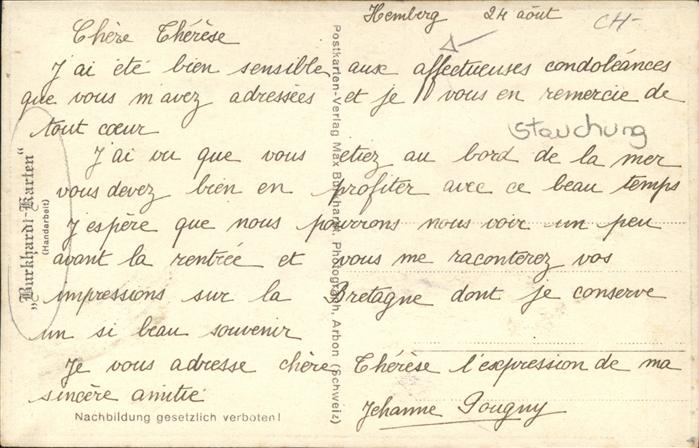 Hemberg 24 août CH-
Chère Thérèse
J'ai été bien sensible aux affectueuses condoléances
que vous m'avez adressées et je vous en remercie de
tout cœur
Stauchung
J'ai vu que vous étiez au bord de la mer
vous devez bien en profiter avec ce beau temps
J'espère que nous pourrons nous voir un peu
avant la rentrée et vous me raconterez vos
impressions sur la Bretagne dont je conserve
un si beau souvenir
Je vous adresse chère Thérèse l'expression de ma
sincère amitié
Jehanne Gougny
„Burkhardt-Karten“
(Handarbeit)
Postkarten-Verlag Max Burkhardt, Photograph, Arbon (Schweiz)
Nachbildung gesetzlich verboten!